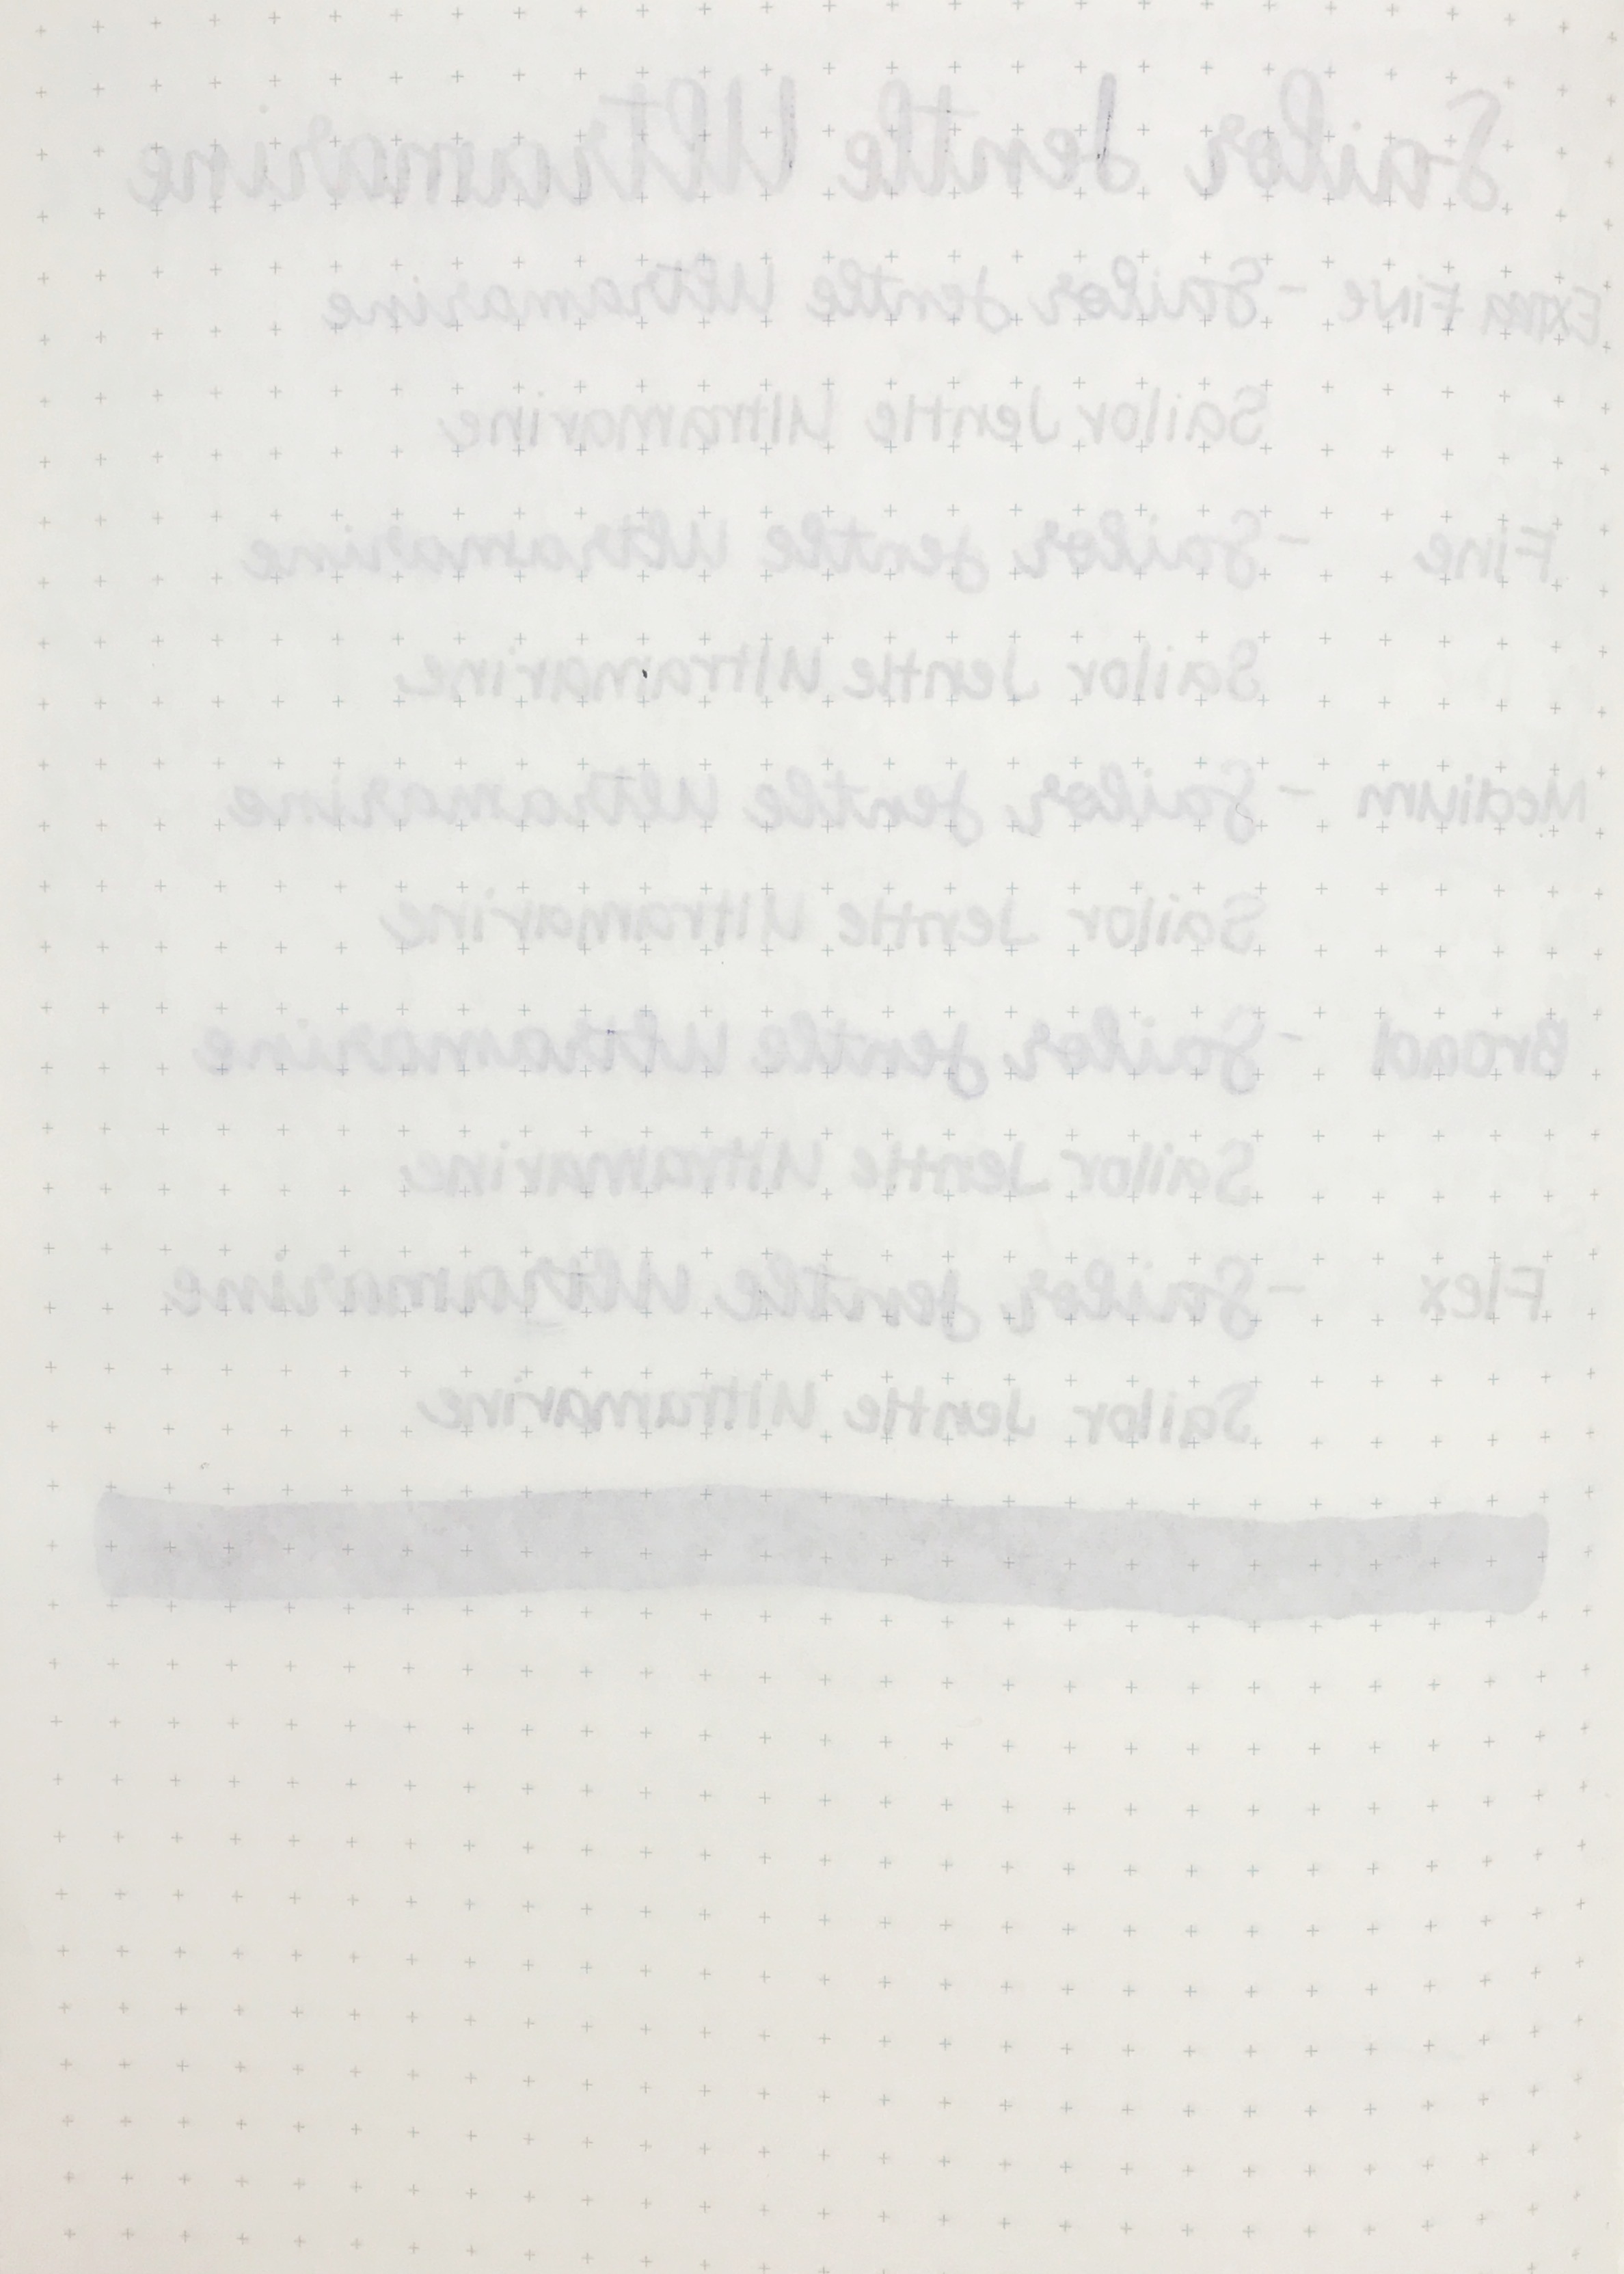 Sailor Jentle Ultramarine
Extra Fine - Sailor Jentle Ultramarine
Sailor Jentle Ultramarine
Fine - Sailor Jentle Ultramarine
Sailor Jentle Ultramarine
Medium - Sailor Jentle Ultramarine
Sailor Jentle Ultramarine
Broad - Sailor Jentle Ultramarine
Sailor Jentle Ultramarine
Flex - Sailor Jentle Ultramarine
Sailor Jentle Ultramarine